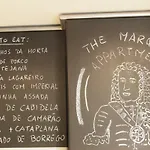 TO EAT:
OS DA HORTA
DE PORCO
TEJANA
LAGAREIRO
IS COM IMPERIAL
INHA ASSADA
DE CABIDELA
DA DE CAMARÃO
+ CATAPLANA
ADO DE BORREGO
THE MARQ
APPARTMEN